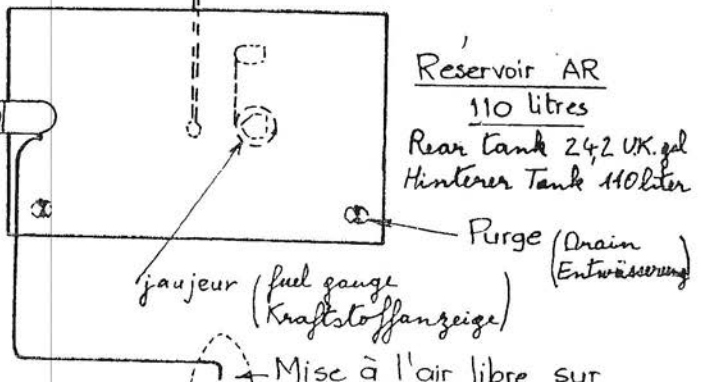 Réservoir AR
110 litres
Rear tank 24,2 U.K. gal
Hinterer Tank 110 liter
Purge (Drain
Entwässerung)
jaujeur (fuel gauge
Kraftstoffanzeige)
Mise à l'air libre sur